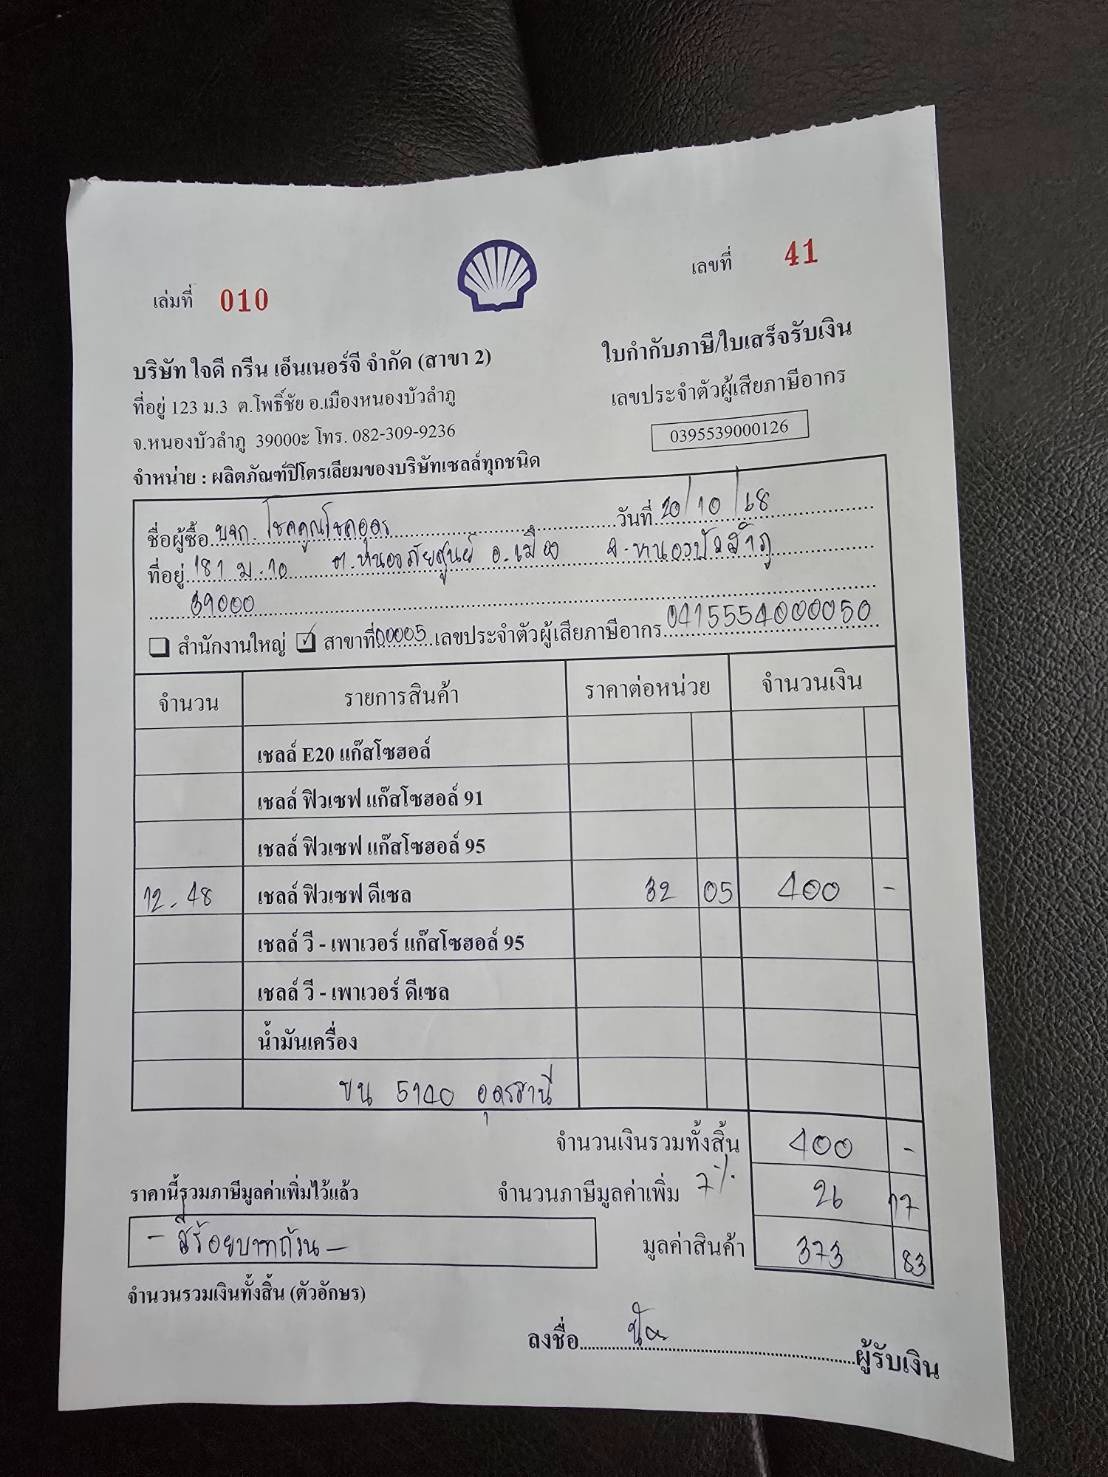 เล่มที่ 010
เลขที่ 41
บริษัท ใจดี กรีน เอ็นเนอร์จี จำกัด (สาขา 2)
ใบกำกับภาษี/ใบเสร็จรับเงิน
ที่อยู่ 123 ม.3 ต.โพธิ์ชัย อ.เมืองหนองบัวลำภู
เลขประจำตัวผู้เสียภาษีอากร
จ.หนองบัวลำภู 39000ะ โทร. 082-309-9236
0395539000126
จำหน่าย : ผลิตภัณฑ์ปิโตรเลียมของบริษัทเชลล์ทุกชนิด
ชื่อผู้ซื้อ บจก. โชคคูณโชคอุดร วันที่ 20/10/68
ที่อยู่ 181 ม.10 ต.หนองภัยศูนย์ อ.เมือง จ.หนองบัวลำภู
39000
สำนักงานใหญ่ ✓ สาขาที่ 00005 เลขประจำตัวผู้เสียภาษีอากร 0415554000050
จำนวน รายการสินค้า ราคาต่อหน่วย จำนวนเงิน
เชลล์ E20 แก๊สโซฮอล์
เชลล์ ฟิวเซฟ แก๊สโซฮอล์ 91
เชลล์ ฟิวเซฟ แก๊สโซฮอล์ 95
12.48 เชลล์ ฟิวเซฟ ดีเซล 32 05 400 -
เชลล์ วี - เพาเวอร์ แก๊สโซฮอล์ 95
เชลล์ วี - เพาเวอร์ ดีเซล
น้ำมันเครื่อง
ขน 5140 อุดรธานี
จำนวนเงินรวมทั้งสิ้น 400 -
ราคานี้รวมภาษีมูลค่าเพิ่มไว้แล้ว จำนวนภาษีมูลค่าเพิ่ม 7% 26 17
- สี่ร้อยบาทถ้วน - มูลค่าสินค้า 373 83
จำนวนรวมเงินทั้งสิ้น (ตัวอักษร)
ลงชื่อ ผู้รับเงิน